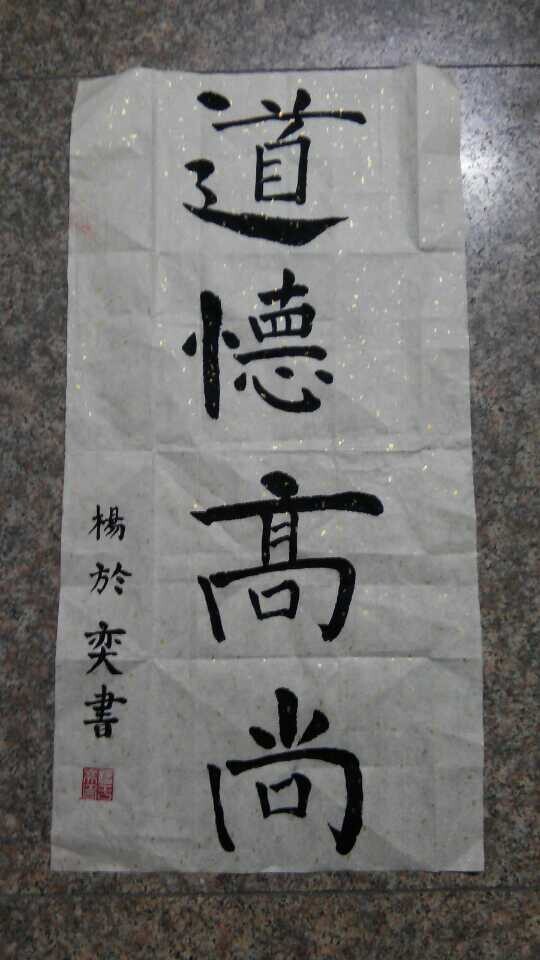 道德高尚
楊於奕書